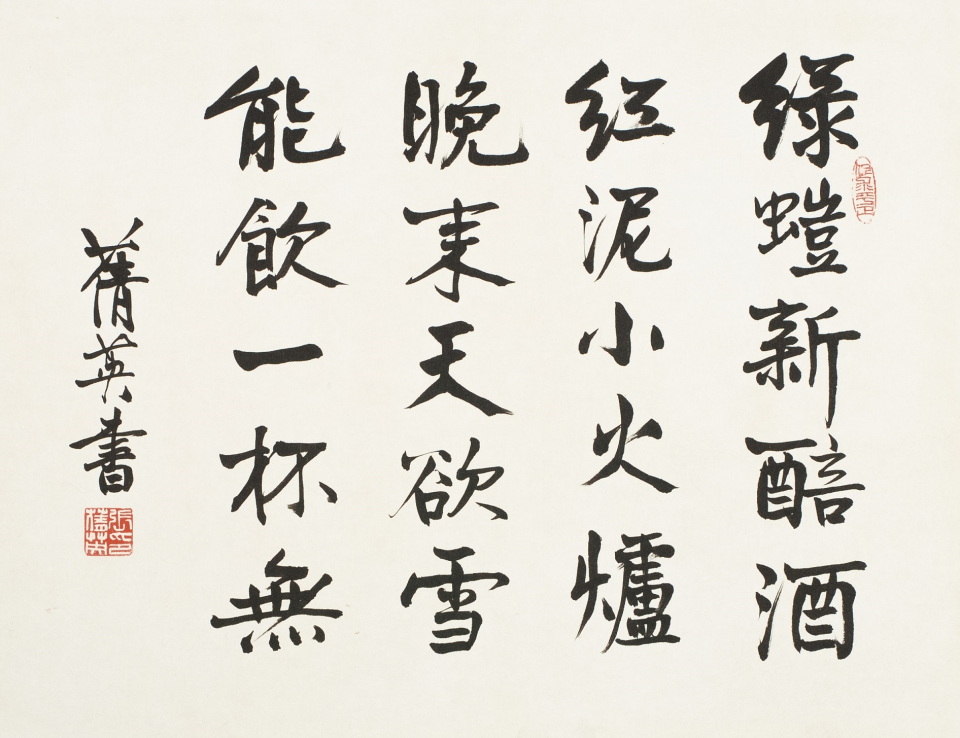 綠螘新醅酒
紅泥小火爐
晚来天欲雪
能飲一杯無
蒨英書